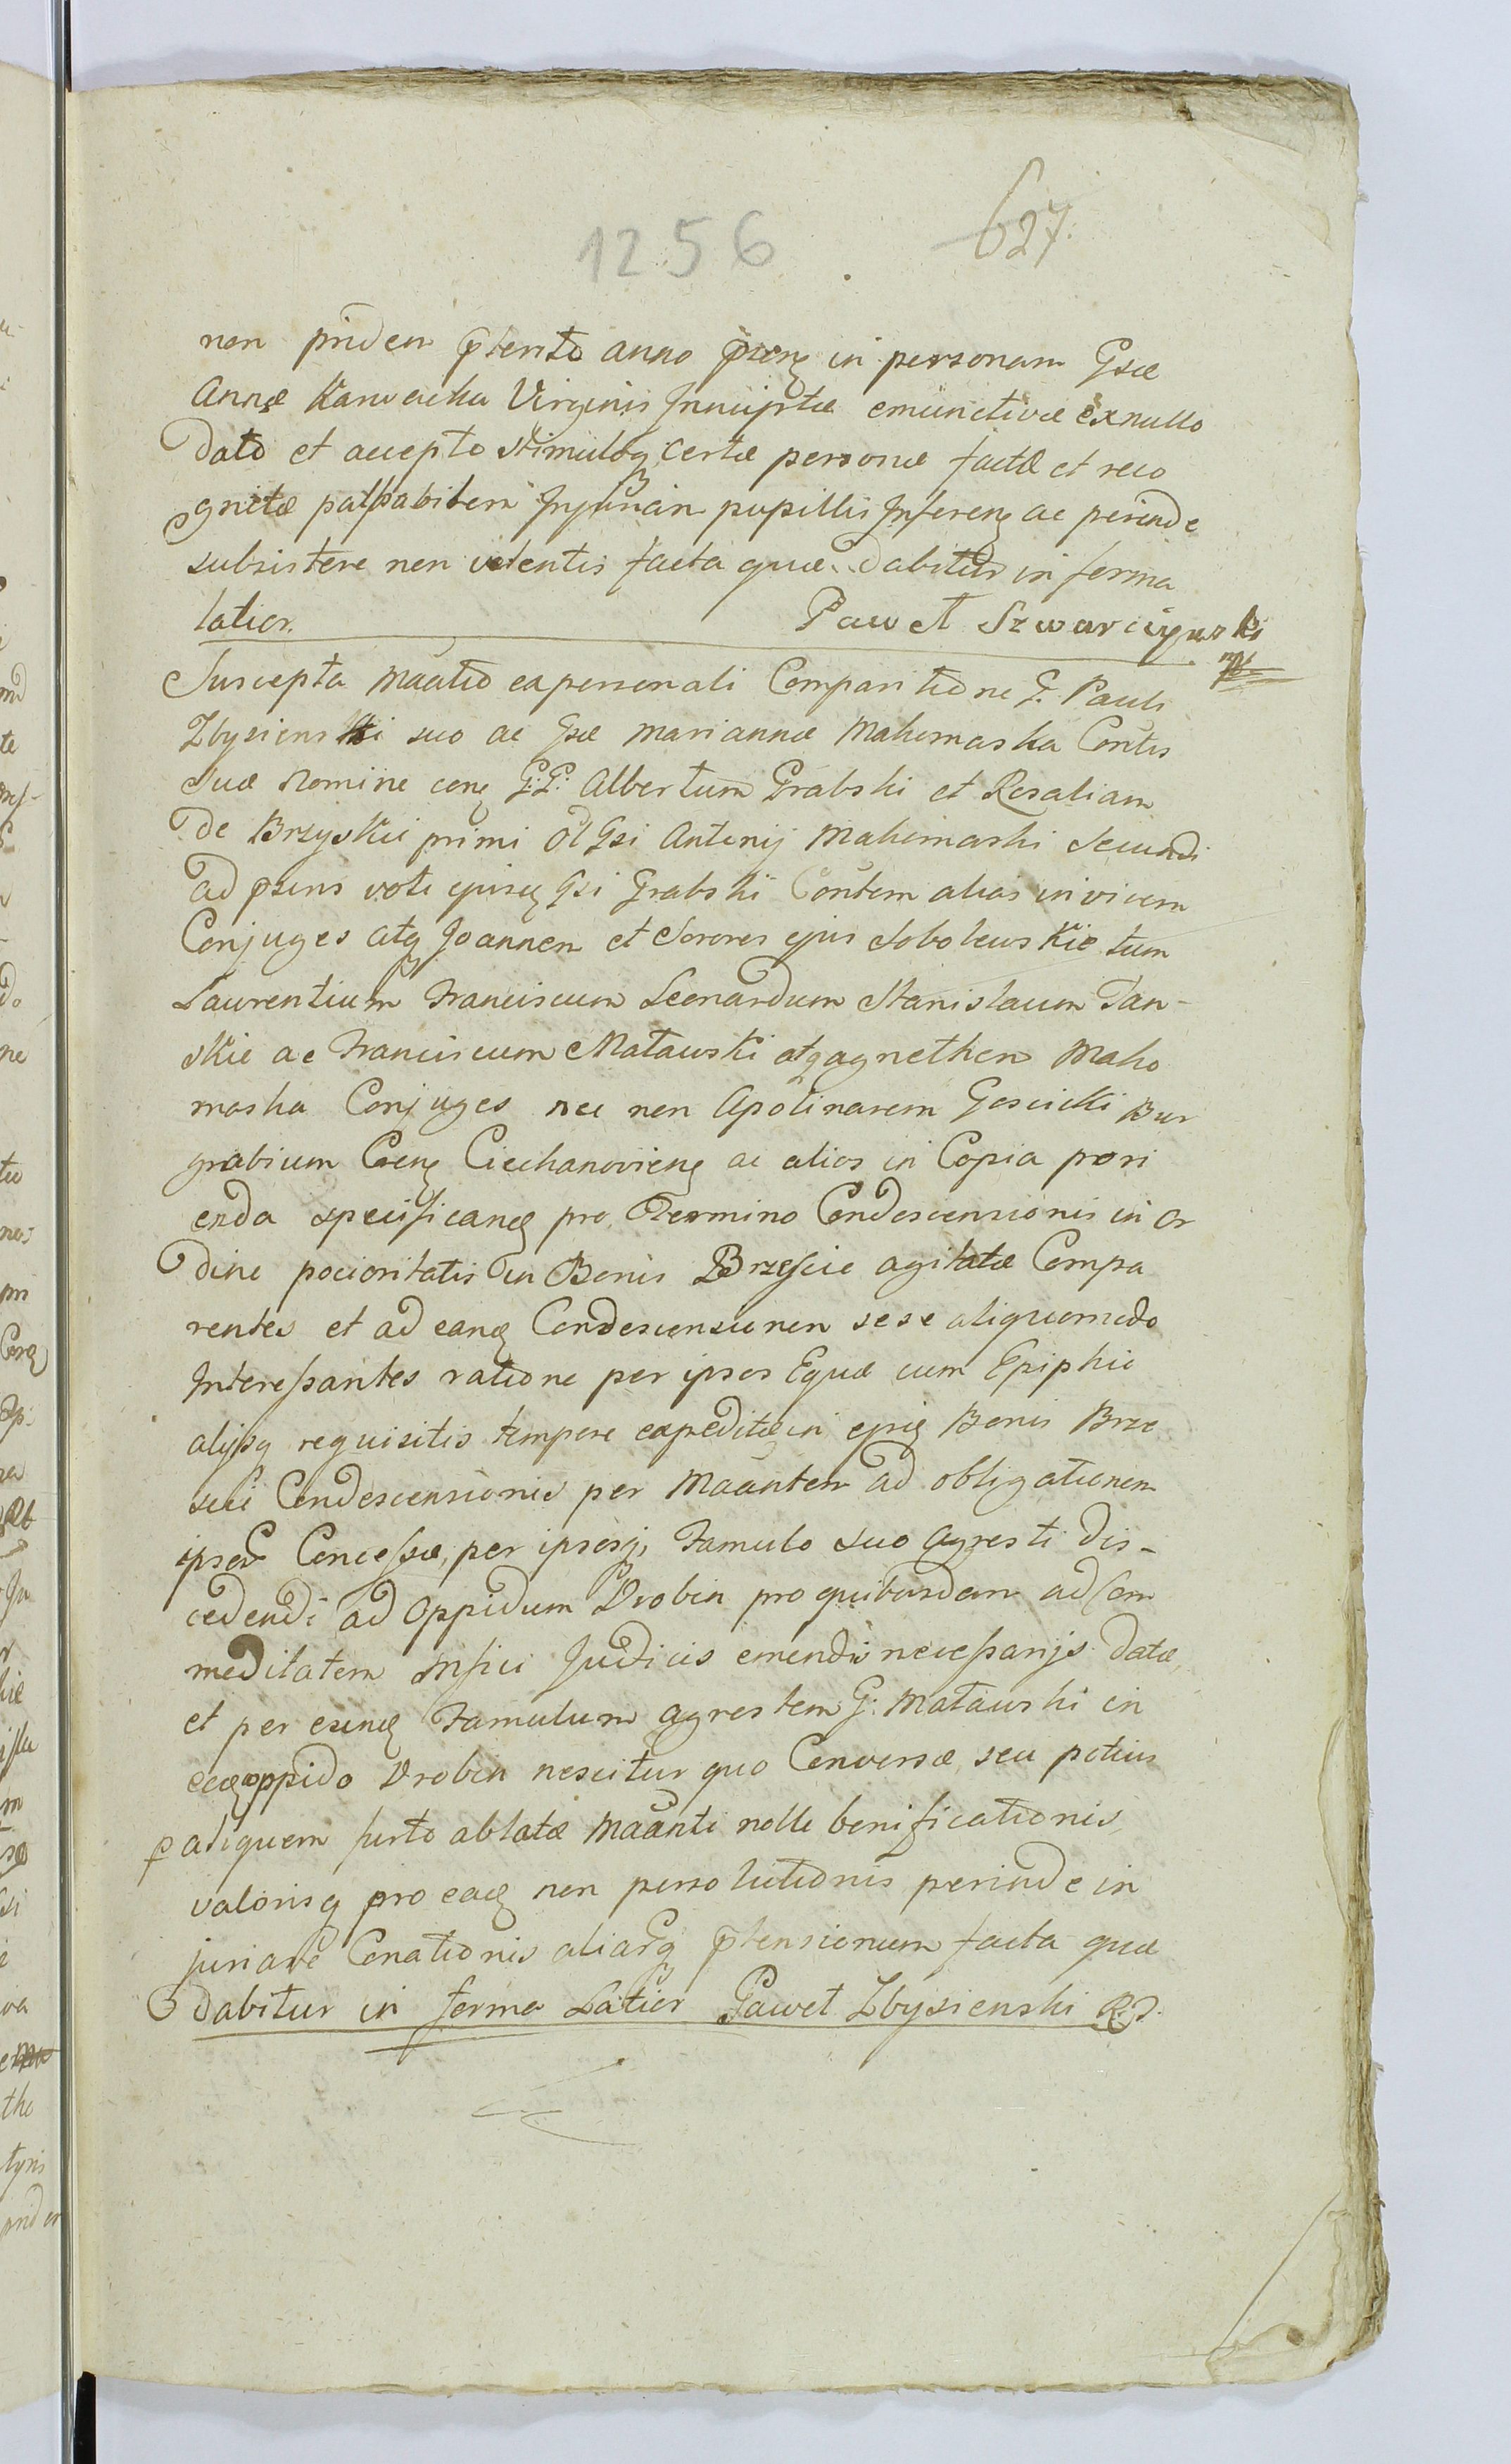 1256 627.
non pridem pterito anno pseng in personam Gsæ
Annæ Karwacka Virginis Innuptæ emunctivæ ex nullo
dato et accepto stimuloq certæ personæ factæ et reco
gnitæ palpabilem Injuriam pupillis Inferenq ac perinde
subsistere non valentis facta quæ dabitur in forma
latior. Paweł Szwarcynski
mp
Suscepta Maatio ex personali Comparitione G. Pauli
Zbysienski suo ac Gsæ Mariannæ Makomaska Contis
Suæ Nomine conq G:G: Albertum Grabski et Rosaliam
de Brzyskie primi ol Gsi Antonij Makomaski Secundi
ad psens voti ejusq Gsi Grabski Contem alias invicem
Conjuges atq Joannem et Sorores ejus Sobolewskie tum
Laurentium Franciscum Leonardum Stanislaum Dan-
skie ac Franciscum Matawski atq agnethen Mako
maska Conjuges nec non Apolinarem Goscicki Bur
grabium Crenq Ciechanovienq ac alios in Copia pori
enda specificanq pro Termino Condescensionis in or
dine pocioritatis in Bonis Brzescie agitatæ Compa
rentes et ad eanq Condescensionem sese aliquomodo
Interessantes ratione per ipsos Equæ cum Ephipio
alijsq requisitis tempore expeditæ in ejsq Bonis Brze
scie Condescensionis per Maantem ad obligationem
ipsor Concessæ, per ipsosq, Famulo suo agresti dis-
cedendi ad Oppidum Drobin pro quibusdam ad Com
moditatem Insici Judicis emendis necessarijs datæ,
et per eunq Famulum agrestem G: Matawski in
eoq oppido Drobin nescitur quo Conversæ seu potius
p aliquem furto ablatæ Maanti nolle bonificationis,
valorisq pro eaq non persolutionis perinde in
juriare Conationis aliarq ptensionum facta quæ
dabitur in forma Latior Paweł Zbysienski R.P.